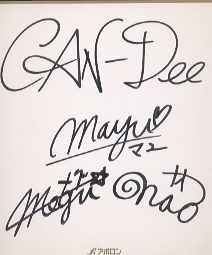 CAN-Dee
mayu
マユ
Megu
nao
アポロン